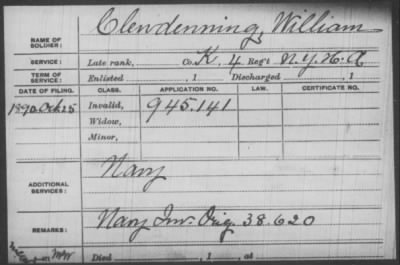 Clendenning, William
NAME OF SOLDIER:
SERVICE: Late rank, Co. K, 4 Reg't N.Y.H.A
TERM OF SERVICE: Enlisted , 1 Discharged , 1
DATE OF FILING. CLASS. APPLICATION NO. LAW. CERTIFICATE NO.
1890 Oct 25 Invalid, 945.141
Widow,
Minor,
ADDITIONAL SERVICES: Navy
REMARKS: Navy Inv. Orig. 38.620
Died , 1 , at